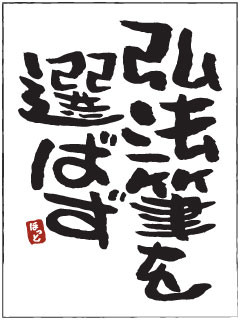 弘法筆を
選ばず
ほっと